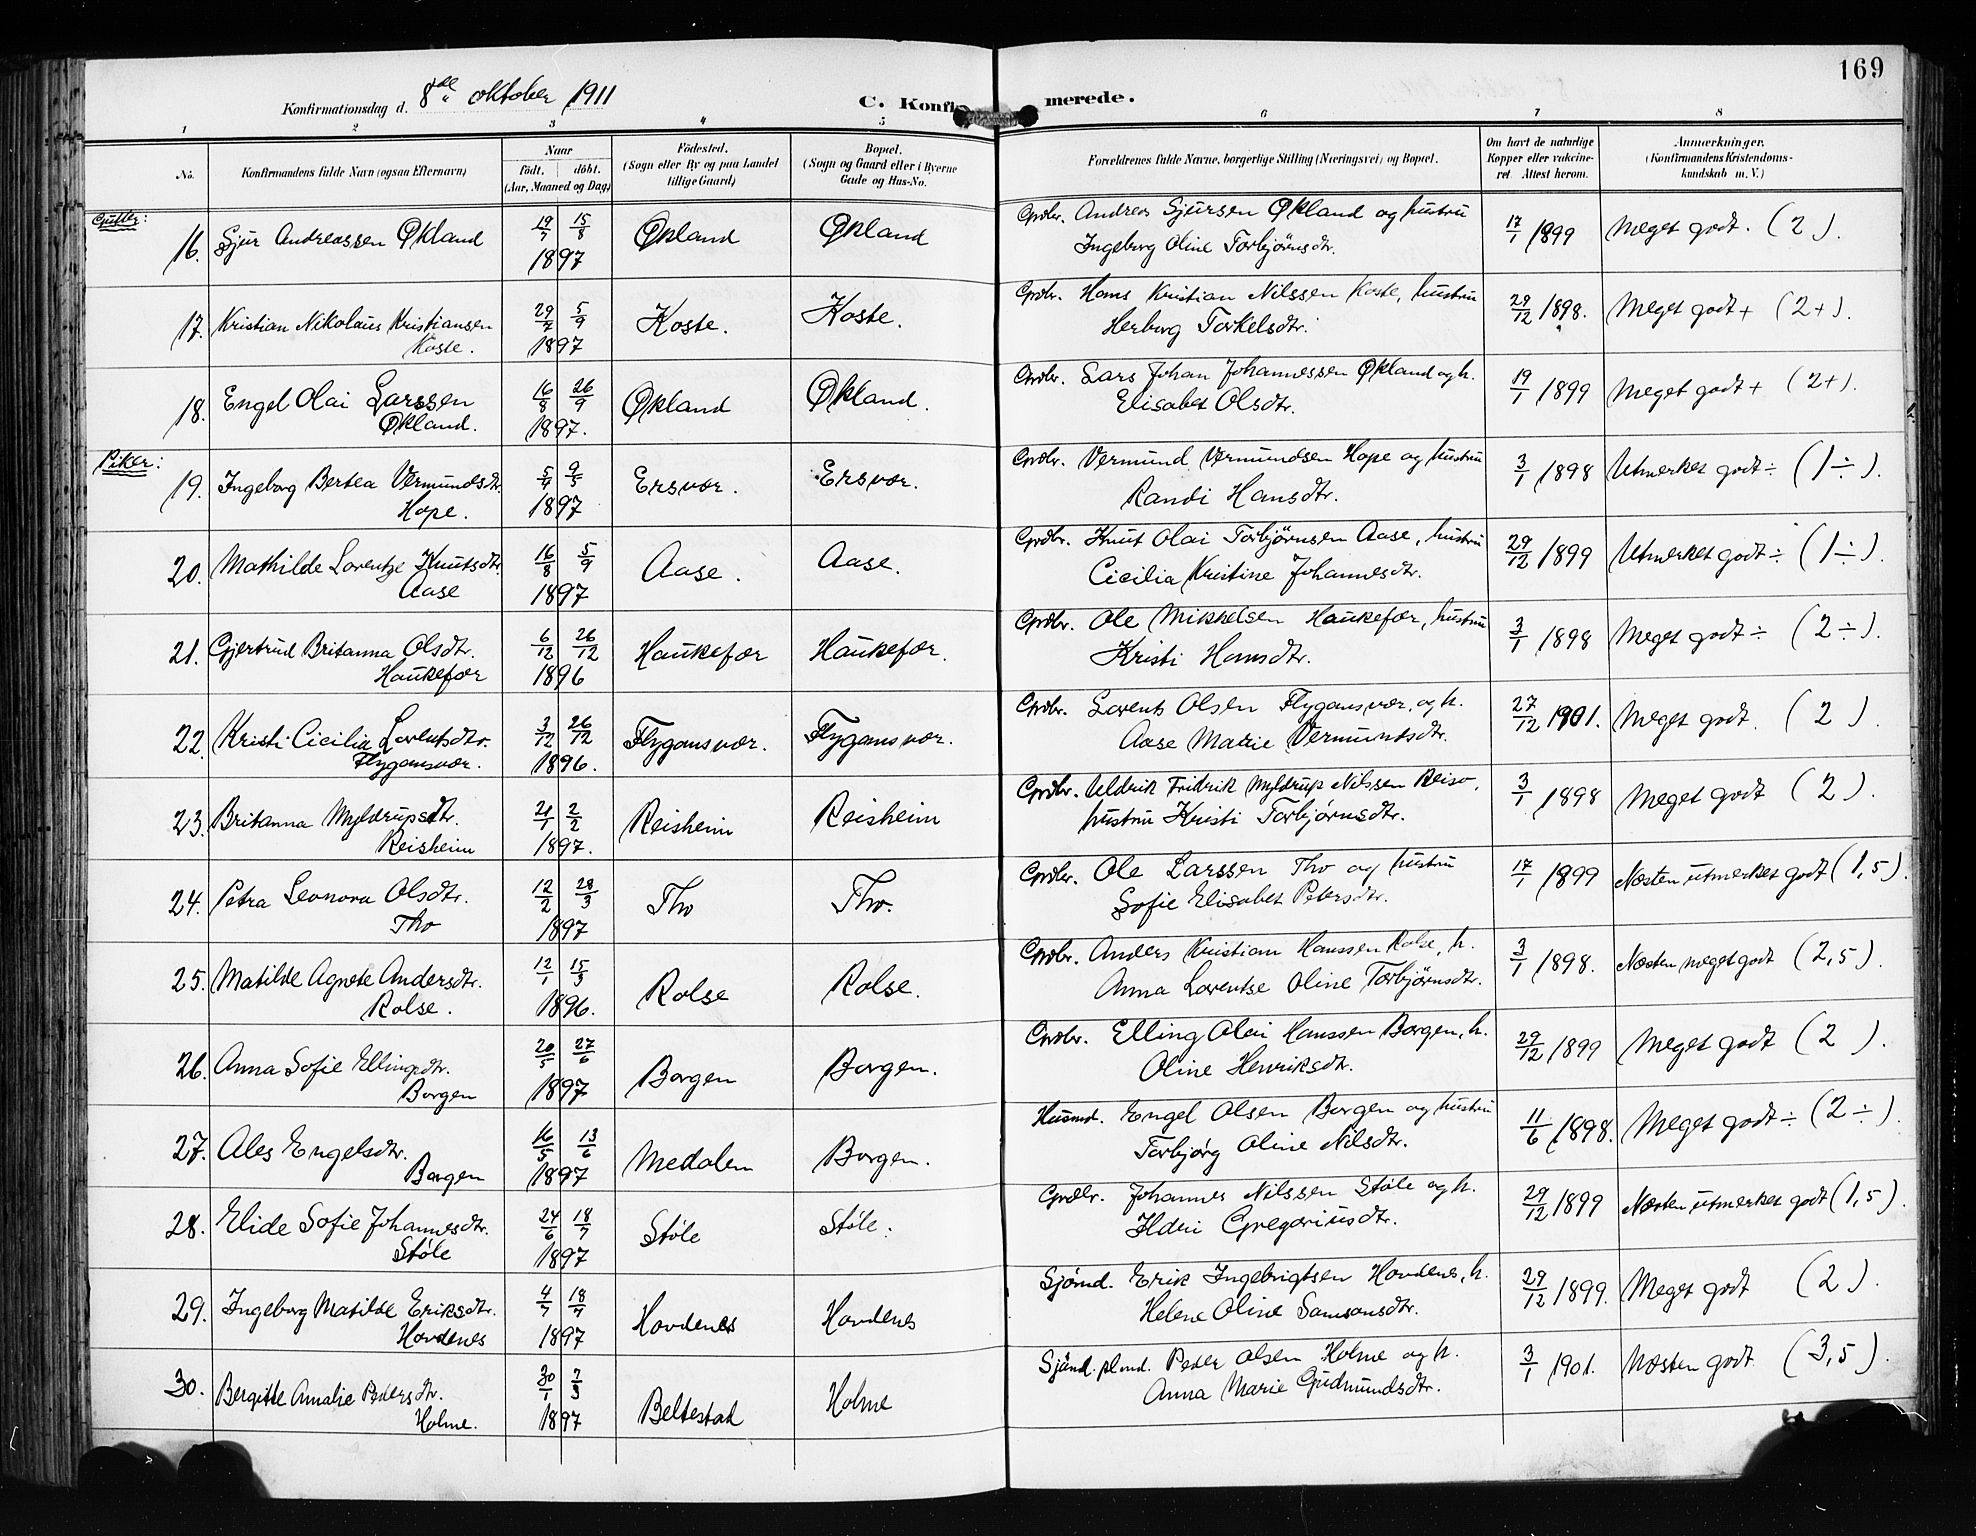 169
Konfirmationsdag d. 8de oktober 1911
C. Konfirmerede.
1 2 3 4 5 6 7 8
No. Konfirmandens fulde Navn (ogsaa Efternavn) Naar født. døbt. (Aar, Maaned og Dag) Fødested. (Sogn eller By og paa Landet tillige Gaard) Bopæl. (Sogn og Gaard eller i Byerne Gade og Hus-No. Forældrenes fulde Navne, borgerlige Stilling (Næringsvei) og Bopæl. Om havt de naturlige Kopper eller vakcineret. Attest herom. Anmærkninger. (Konfirmandens Kristendomskundskab m. V.)
Gutter:
16. Sjur Andreassen Økland 19/7 15/8 1897 Økland Økland Grdbr. Andreas Sjursen Økland og hustru 17/1 1899 Meget godt. (2).
Ingeborg Oline Torbjørnsdtr.
17. Kristian Nikolaus Kristiansen 29/7 5/9 1897 Koste. Koste. Grdbr. Hans Kristian Nilssen Koste, hustru 29/12 1898. Meget godt + (2+).
Koste. Herborg Torkelsdtr.
18. Engel Olai Larssen 16/8 26/9 1897. Økland Økland. Grdbr. Lars Johan Johannessen Økland og h. 19/1 1899 Meget godt + (2+).
Økland. Elisabet Olsdtr.
Piker:
19. Ingeborg Bertea Vermundsdtr. 1897 Ersvær. Ersvær. Grdbr. Vermund Vermundsen Hope og hustru 3/1 1898 Utmerket godt ÷ (1÷).
Hope. Randi Hansdtr.
20. Mathilde Lorentze Knutsdtr. 16/8 5/9 1897 Aase. Aase. Grdbr. Knut Olai Torbjørnsen Aase, hustru 29/12 1899 Utmerket godt ÷ (1÷).
Aase Cicilia Kristine Johannesdtr.
21. Gjertrud Britanna Olsdtr. 6/12 26/12 1896 Haukefær Haukefær. Grdbr. Ole Mikkelsen Haukefær, hustru 3/1 1898 Meget godt ÷ (2÷).
Haukefær Kristi Hansdtr.
22. Kristi Cicilia Lorentsdtr. 3/12 26/12 1896. Flygansvær. Flygansvær. Grdbr. Lorents Olsen Flygansvær, og h. 27/12 1901. Meget godt. (2).
Flygansvær. Aase Marie Vermundsdtr.
23. Britanna Myldrupsdtr. 21/1 2/2 1897. Reisheim Reisheim Grdbr. Uldrik Fridrik Myldrup Nilssen 3/1 1898 Meget godt (2).
Reisheim hustru Kristi Torbjørnsdtr.
24. Petra Leonora Olsdtr. 12/2 28/3 1897 Tho Tho. Grdbr. Ole Larssen Tho og hustru 17/1 1899 Næsten utmerket godt (1,5).
Tho Sofie Elisabet Petersdtr.
25. Matilde Agnete Andersdtr. 12/1 15/3 1896. Rolse Rolse. Grdbr. Anders Kristian Hanssen Rolse, h. 3/1 1898. Næsten meget godt (2,5).
Rolse. Anna Lorentse Oline Torbjørnsdtr.
26. Anna Sofie Ellingsdtr. 20/5 27/6 1897 Borgen Borgen. Grdbr. Elling Olai Hanssen Borgen, h. 29/12 1899 Meget godt (2).
Borgen Oline Henriksdtr.
27. Ales Engelsdtr. 16/5 13/6 1897 Medalen Borgen. Husmd. Engel Olsen Borgen og hustru 11/6 1898. Meget godt ÷ (2÷).
Borgen Torbjørg Oline Nilsdtr.
28. Elide Sofie Johannesdtr. 24/6 18/7 1897 Støle Støle. Grdbr. Johannes Nilssen Støle og h. 29/12 1899 Næsten utmerket godt (1,5).
Støle Ildri Gregoriusdtr.
29. Ingeborg Matilde Eriksdtr. 4/7 18/7 1897 Hovdenes Hovdenes Sjømd. Erik Ingebrigtsen Hovdenes, h. 29/12 1899. Meget godt (2).
Hovdenes Helene Oline Samsonsdtr.
30. Bergitte Amalie Pedersdtr. 30/1 7/3 1897 Beltestad Holme Sjømd. plmd. Peder Olsen Holme og h. 3/1 1901. Næsten godt (3,5).
Holme. Anna Marie Gudmundsdtr.